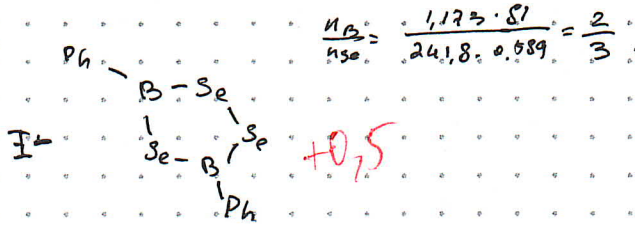 n_B/n_Se = (1,173 · 81)/(241,8 · 0,589) = 2/3
Ph
B - Se
I - Se - B Se
Ph
+0,5